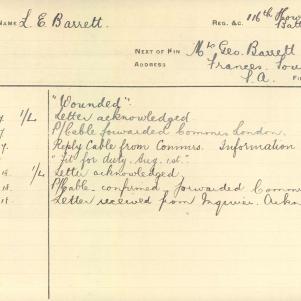 NAME L. E. Barrett. REG. &C. 116th How
Batt
NEXT OF KIN Mrs Geo. Barrett
ADDRESS Frances, Sou
S.A.
"Wounded".
1/L Letter acknowledged
P/Cable forwarded Commrs London.
Reply Cable from Commrs. Information
"fit for duty. Aug. 1st."
1/L Letter acknowledged,
P/Cable confirmed, forwarded Comm
Letter received from Inquirer. Ackn